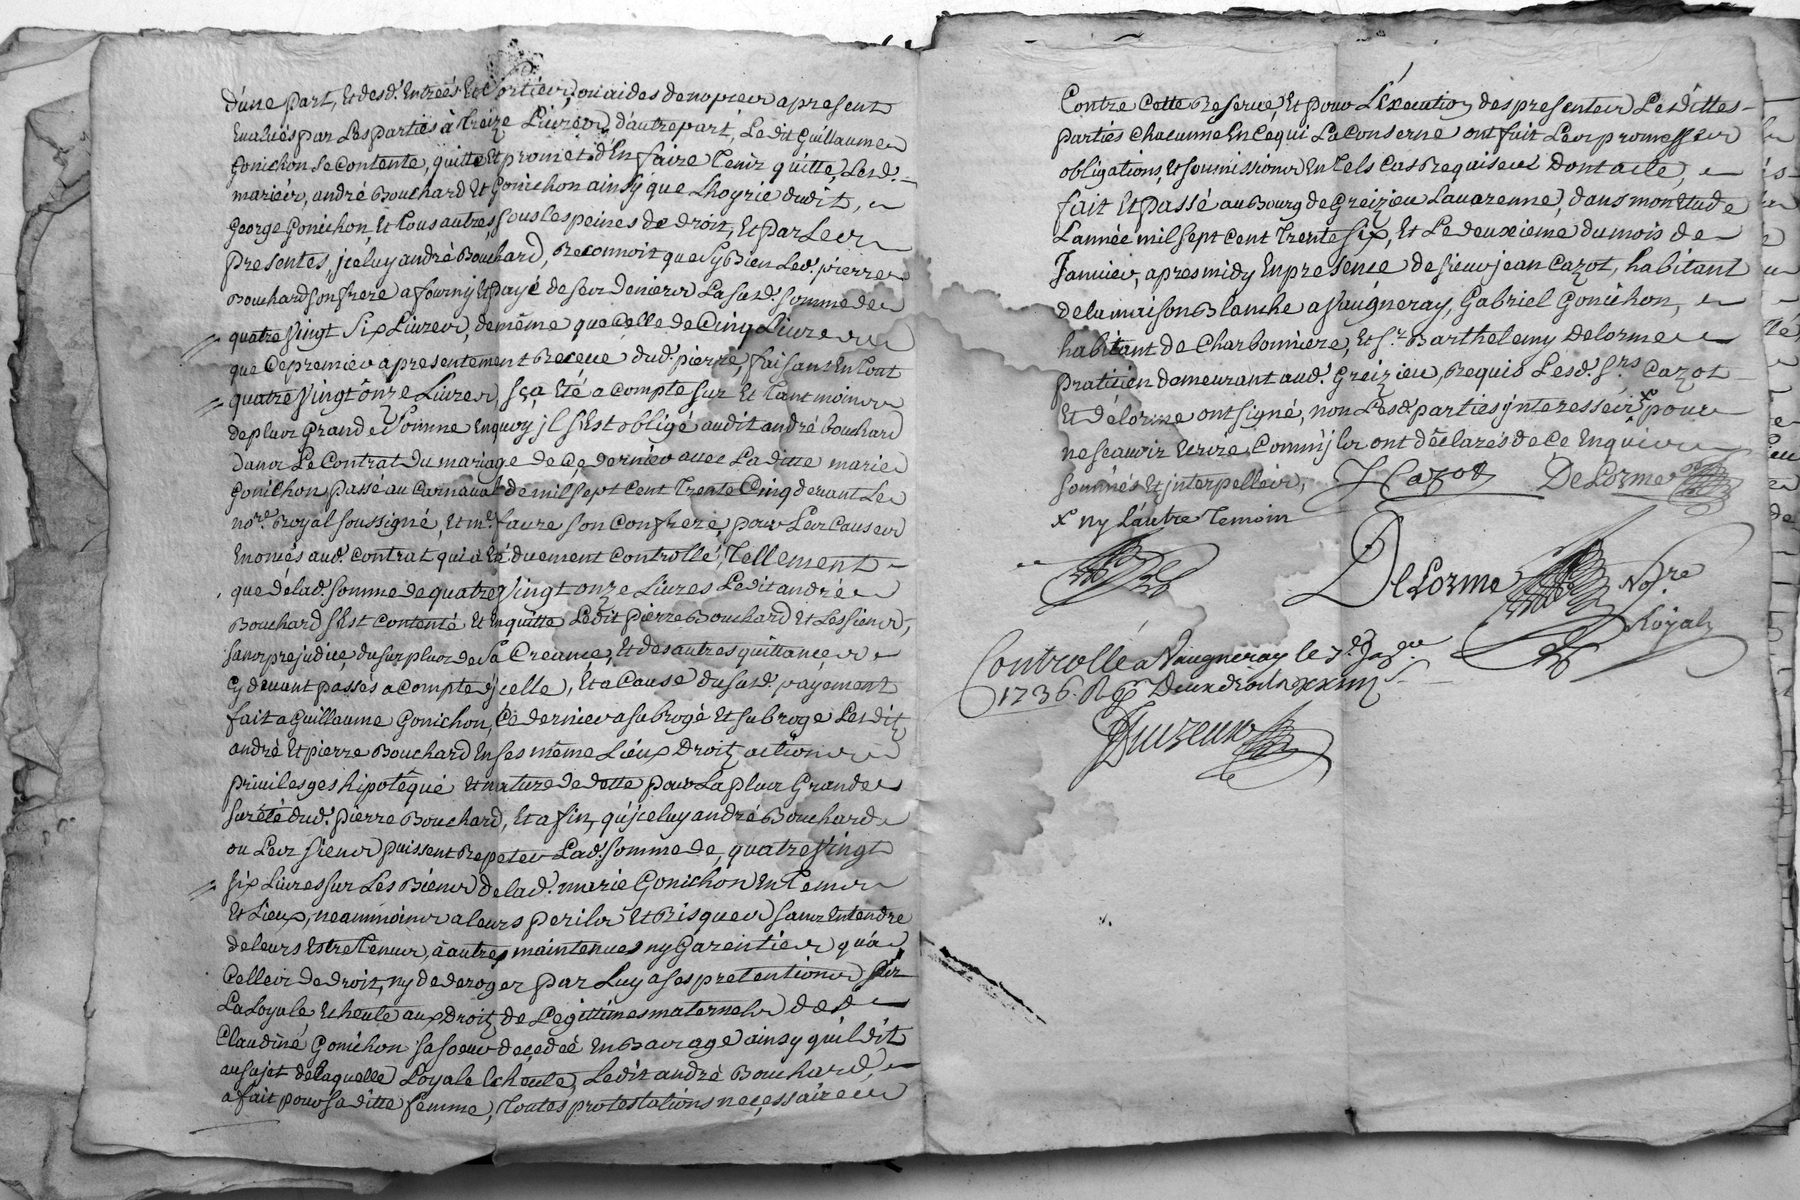 d'une part, Et desd. Entreés Et sortieŭ, ou aides de nopces a present
Evalués par Les parties à treize Livres, d'autre part, Le dit Guillaume
Gonichon se contente, quitte Et promet d'En faire Tenir quitte, Lesd.
mariér, andré Bouchard Et Gonichon ainsy que L'hoyrie dudit,
George Gonichon, Et tous autres, sous les peines de droit, Et par Les
presentes, jceluy andré Bouchard, Reconnoit que sy Bien Led. pierre
Bouchard son frere a fourny Et payé de ses deniers La susd. somme de
quatre Vingt Six Livres, de même que Celle de Cinq Livres
que Ce premier a presentement Receüe dud. pierre, faisant En tout
quatre Vingt onze Livres, sça Eté a compte sur Et tant moins
de plus Grande Somme En quoy jl s'Est obligé audit andré bouchard
dans Le Contrat du mariage de Ce dernier avec La ditte marie
Gonichon passé au Carnaval de mil sept cent trente Cinq devant Le
no.re Royal soussigné, Et m.e faure son Confrere, pour Les Causes
Enoncés aud. Contrat qui a Eté duement Controllé, Tellement
que de lad. somme de quatre Vingt onze Livres Ledit andré
Bouchard s'Est contenté Et En quitte Ledit pierre Bouchard Et Les siens,
sans prejudice, du surplus de Sa Creance, Et des autres quittances
Cy devant passés a compte d'jcelle, Et a Cause du susd. payement
fait a Guillaume Gonichon, Ce dernier a subrogé Et subroge Les dit
andré Et pierre Bouchard En ses même Lieux Droit, actions
privileges hipotéque Et nature de dette pour La plus Grande
sureté dud. pierre Bouchard, Et afin, qu'jceluy andré Bouchard
ou Les siens puissent Repeter Lad. somme de, quatre Vingt
six Livres sur Les Biens de lad. marie Gonichon En Tems
Et Lieux, neammoins a leurs perils Et Risques sans Entendre
de leurs Estre Tenus, à autres maintenües ny Garenties qu'a
Celles de droit, ny de deroger par Luy a ses pretentions sur
La Loyale Echeute aux Droit, de Legittimes maternels de
Claudine Gonichon sa soeur decedeé En Bas age ainsy qu'il dit
au sujet de laquelle Loyale Echeute, Ledit andré Bouchard,
a fait pour sa ditte femme, Toutes protestations necessaires
Contre Cette Reserve, Et pour L'Execution des presentes Les dittes
parties Chacunne En Ce qui La Conserne ont fait Leurs promesses
obligations, Et soumissions En tels Cas Requises Dont acte,
fait Et passé au Bourg de Greizieu Lavarenne, dans mon Etude
L'année mil sept cent trente six, Et Le deuxieme du mois de
Janvier, apres midy En presence de sieur jean Cazot, habitant
de la maison Blanche a Vaugneray, Gabriel Gonichon,
habitant de Charbonniere, Et s.r Barthelemy Delorme
pratitien demeurant aud. Greizieu, Requis Lesd. S.rs Cazot
Et délorme ont signé, non Lesd. parties jnteresseés x pour
ne scavoir Ecrire, Comm'jls ont déclarés de Ce Enquis
sommés Et jnterpellés,
JCazot DeLorme
x ny L'autre Temoin
DeLorme No.re
Royal
Controllé a Vaugneray le 3.e Ja.er
1736. R. Deux